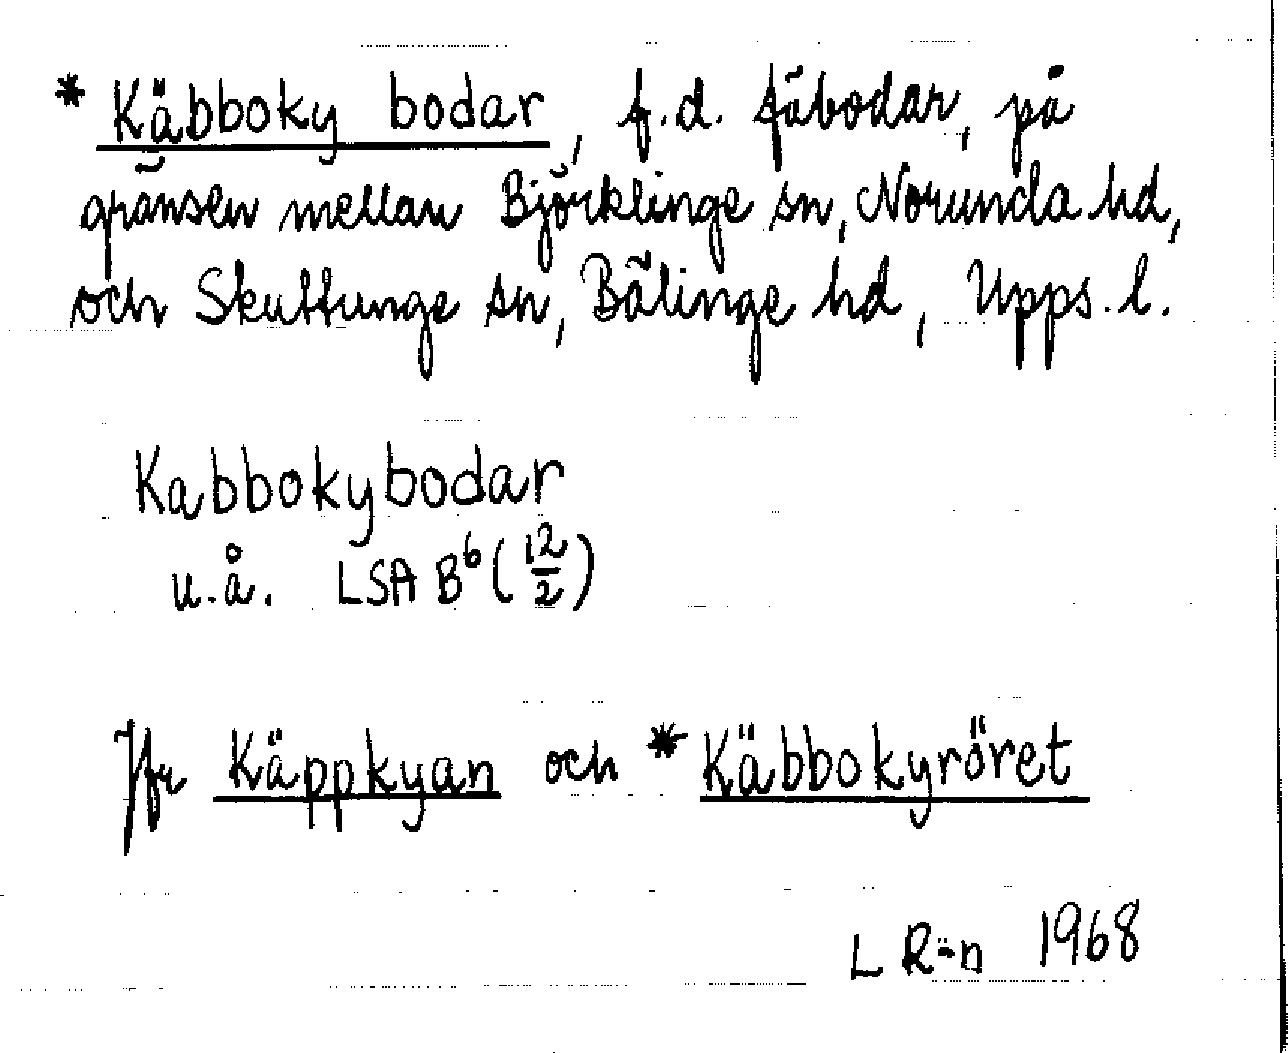 * Käbboky bodar, f.d. fäbodar, på
gränsen mellan Björklinge sn, Norunda hd,
och Skuttunge sn, Bälinge hd, Upps. l.
Kabbokybodar
u.å. LSA B⁶ (12/2)
Jfr Käppkyan och * Käbbokyröret
L R-n 1968